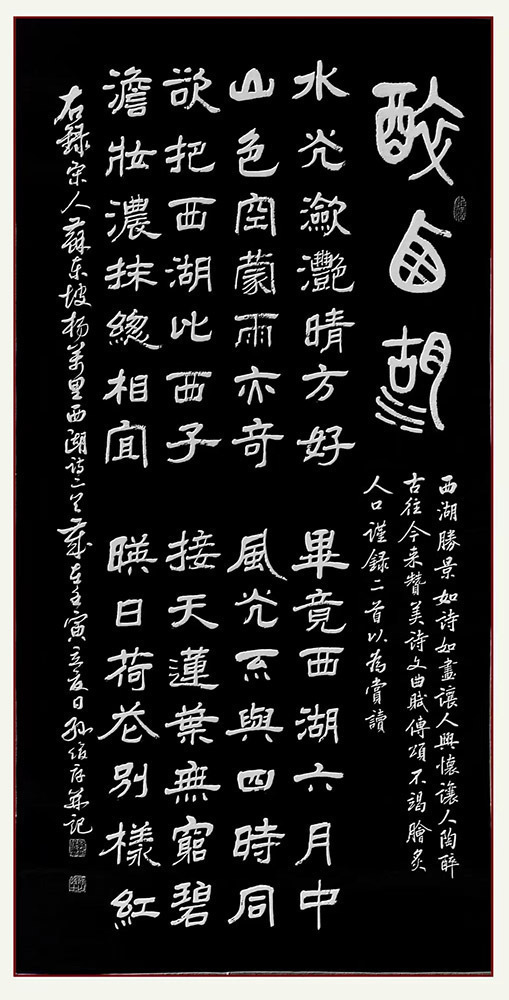 醉西湖
西湖勝景如詩如畫讓人興懷讓人陶醉
古往今來贊美詩文曲賦傳頌不謁膾炙
人口謹録二首以為賞讀
水光瀲灩晴方好
山色空蒙雨亦奇
欲把西湖比西子
澹妝濃抹緫相宜
畢竟西湖六月中
風光不與四時同
接天蓮葉無窮碧
暎日荷花别樣紅
右録宋人蘇東坡楊萬里西湖詩二首歲在壬寅立夏日孫并記